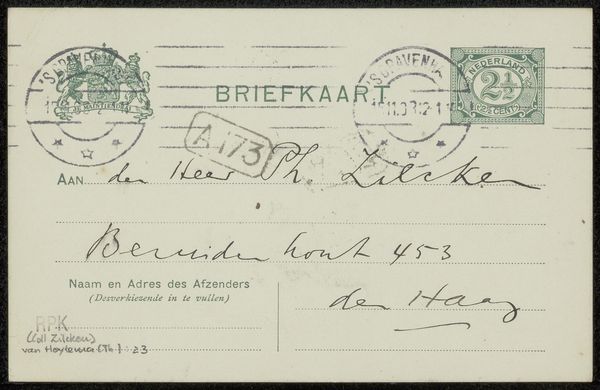 'S GRAVENH
'S GRAVENH
NEDERLAND
2½
(2½ CENT)
BRIEFKAART
A 173
AAN den Heer Ph. Zilcken
Bezuidenhout 453
Naam en Adres des Afzenders
(Desverkiezende in te vullen)
den Haag
RPK
(coll Zilcken)
van Hoytema (Th) 23